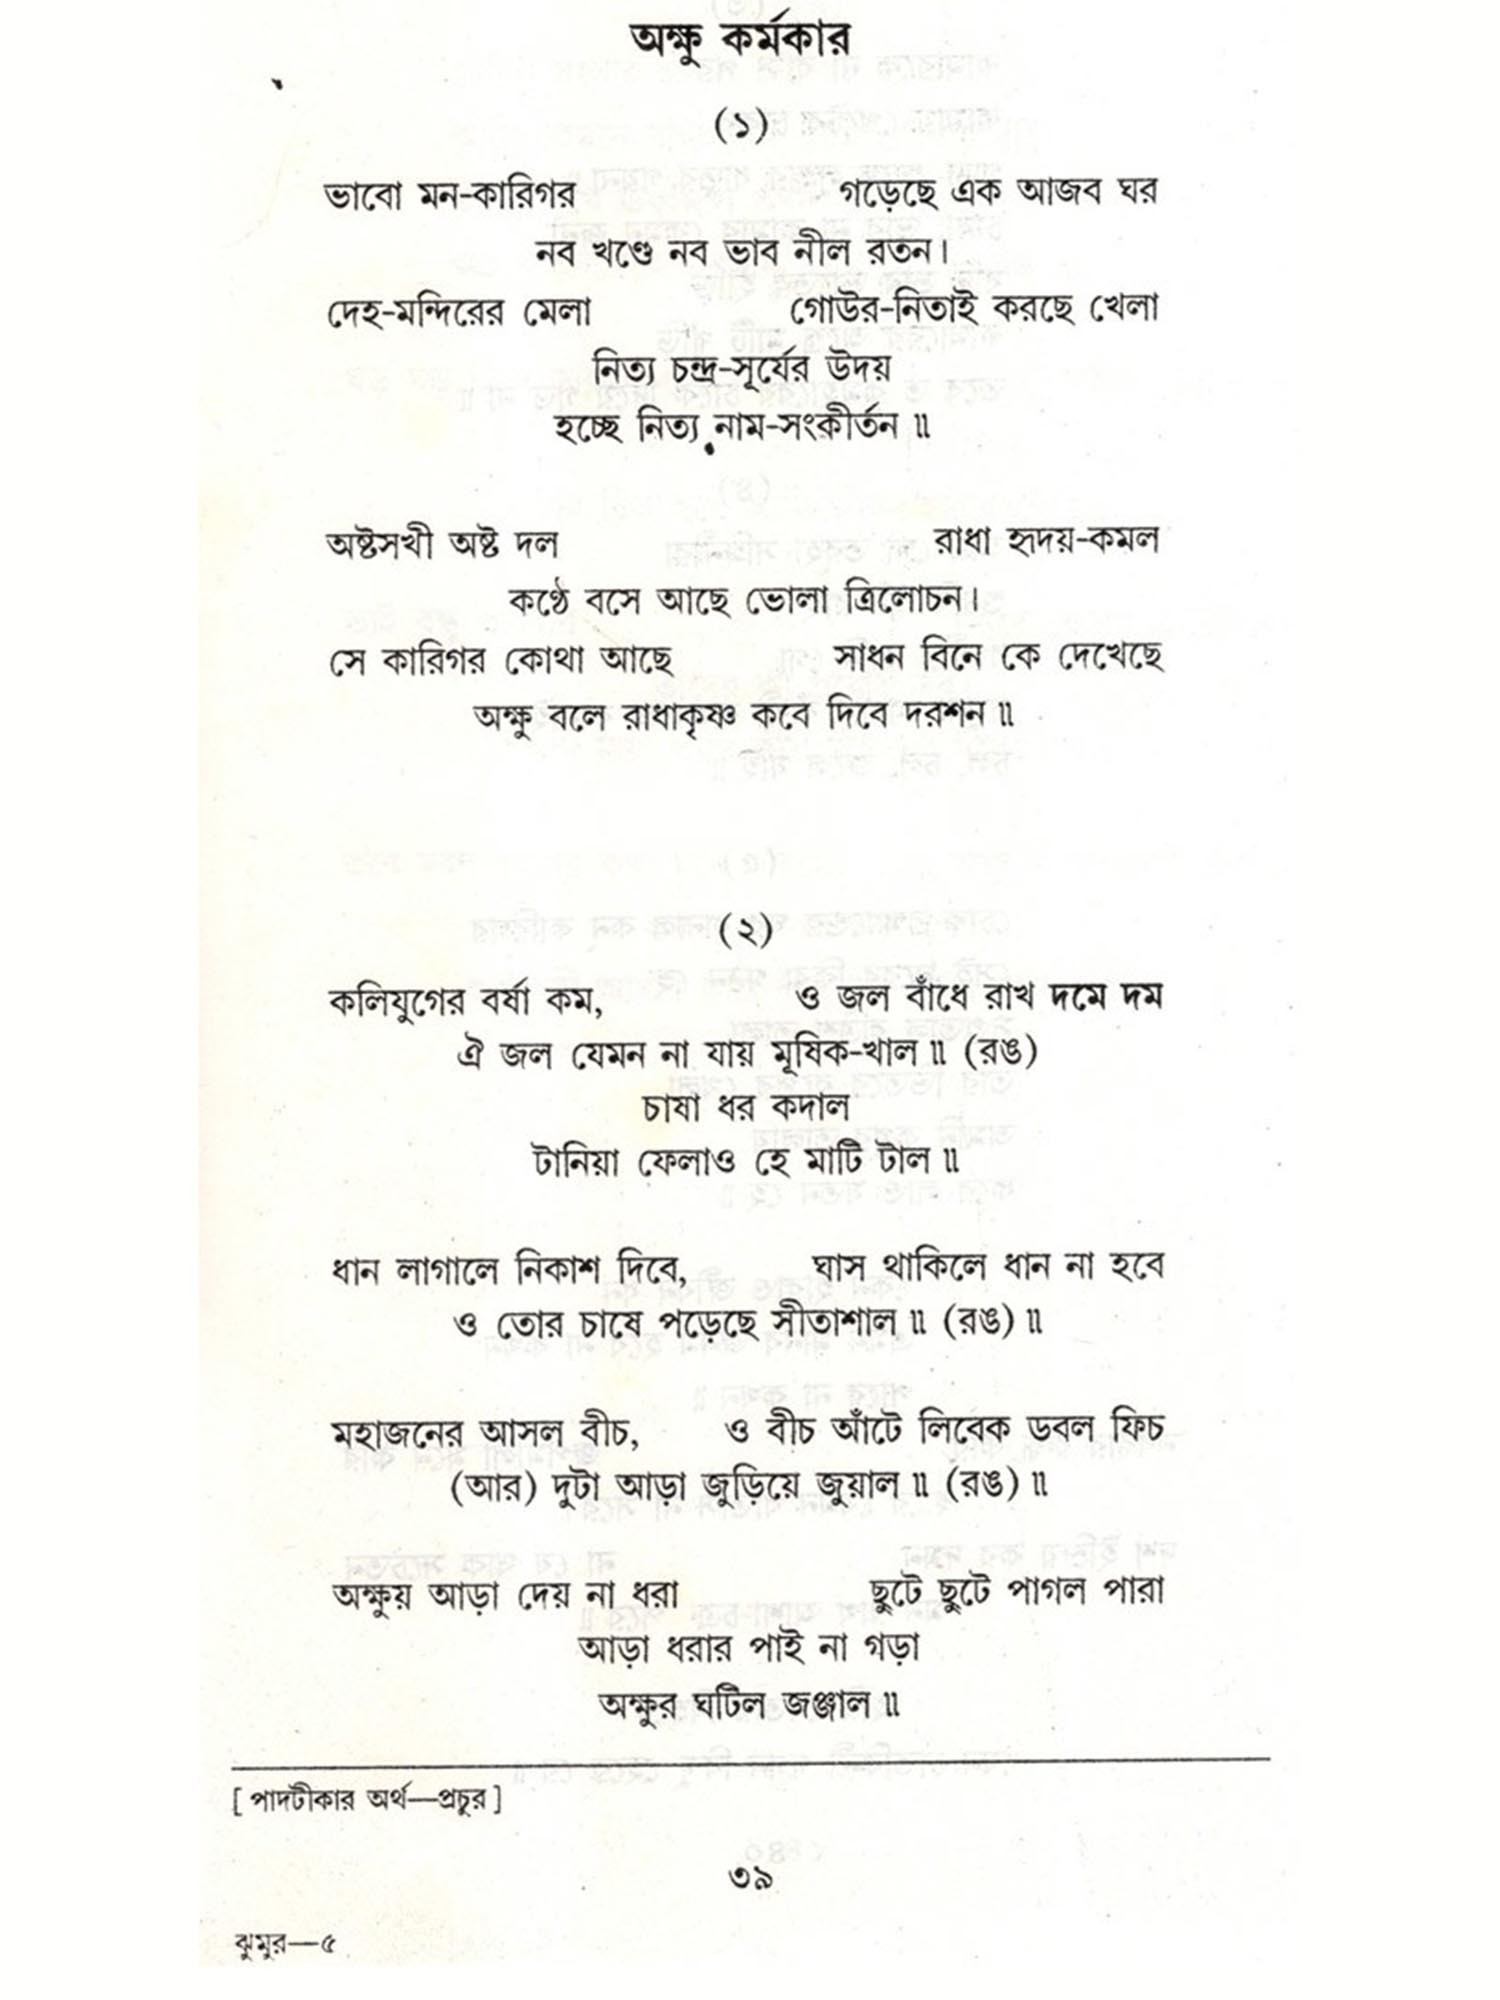 অক্ষু কর্মকার
(১)
ভাবো মন-কারিগর গড়েছে এক আজব ঘর
নব খণ্ডে নব ভাব নীল রতন।
দেহ-মন্দিরের মেলা গোউর-নিতাই করছে খেলা
নিত্য চন্দ্র-সূর্যের উদয়
হচ্ছে নিত্য নাম-সংকীর্তন॥
অষ্টসখী অষ্ট দল রাধা হৃদয়-কমল
কণ্ঠে বসে আছে ভোলা ত্রিলোচন।
সে কারিগর কোথা আছে সাধন বিনে কে দেখেছে
অক্ষু বলে রাধাকৃষ্ণ কবে দিবে দরশন॥
(২)
কলিযুগের বর্ষা কম, ও জল বাঁধে রাখ দমে দম
ঐ জল যেমন না যায় মূষিক-খাল॥ (রঙ)
চাষা ধর কদাল
টানিয়া ফেলাও হে মাটি টাল॥
ধান লাগালে নিকাশ দিবে, ঘাস থাকিলে ধান না হবে
ও তোর চাষে পড়েছে সীতাশাল॥ (রঙ)॥
মহাজনের আসল বীচ, ও বীচ আঁটে লিবেক ডবল ফিচ
(আর) দুটা আড়া জুড়িয়ে জুয়াল॥ (রঙ)॥
অক্ষুয় আড়া দেয় না ধরা ছুটে ছুটে পাগল পারা
আড়া ধরার পাই না গড়া
অক্ষুর ঘটিল জঞ্জাল॥
[ পাদটীকার অর্থ—প্রচুর ]
৩৯
ঝুমুর—৫